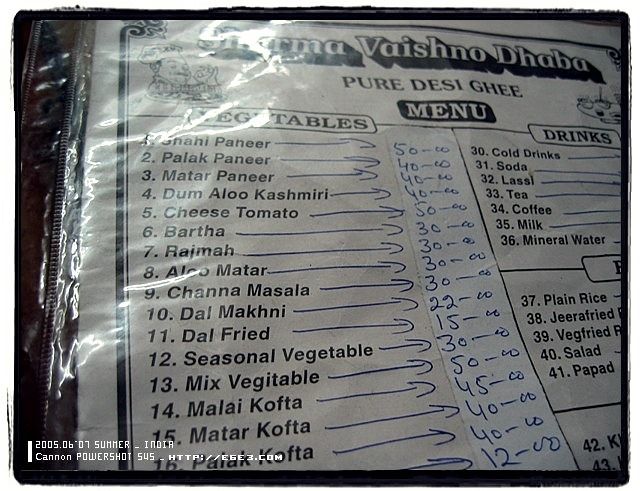 Sharma Vaishno Dhaba
PURE DESI GHEE
MENU
VEGETABLES
1. Shahi Paneer
2. Palak Paneer
3. Matar Paneer
4. Dum Aloo Kashmiri
5. Cheese Tomato
6. Bartha
7. Rajmah
8. Aloo Matar
9. Channa Masala
10. Dal Makhni
11. Dal Fried
12. Seasonal Vegetable
13. Mix Vegitable
14. Malai Kofta
15. Matar Kofta
16. Palak Kofta
50-00
40-00
40-00
40-00
50-00
30-00
30-00
30-00
30-00
22-00
15-00
30-00
50-00
45-00
40-00
40-00
12-00
DRINKS
30. Cold Drinks
31. Soda
32. Lassi
33. Tea
34. Coffee
35. Milk
36. Mineral Water
37. Plain Rice
38. Jeerafried
39. Vegfried R
40. Salad
41. Papad
42.
43.
2005.06'07 SUMMER _ INDIA
Cannon POWERSHOT S45 _ HTTP://EGE3.COM